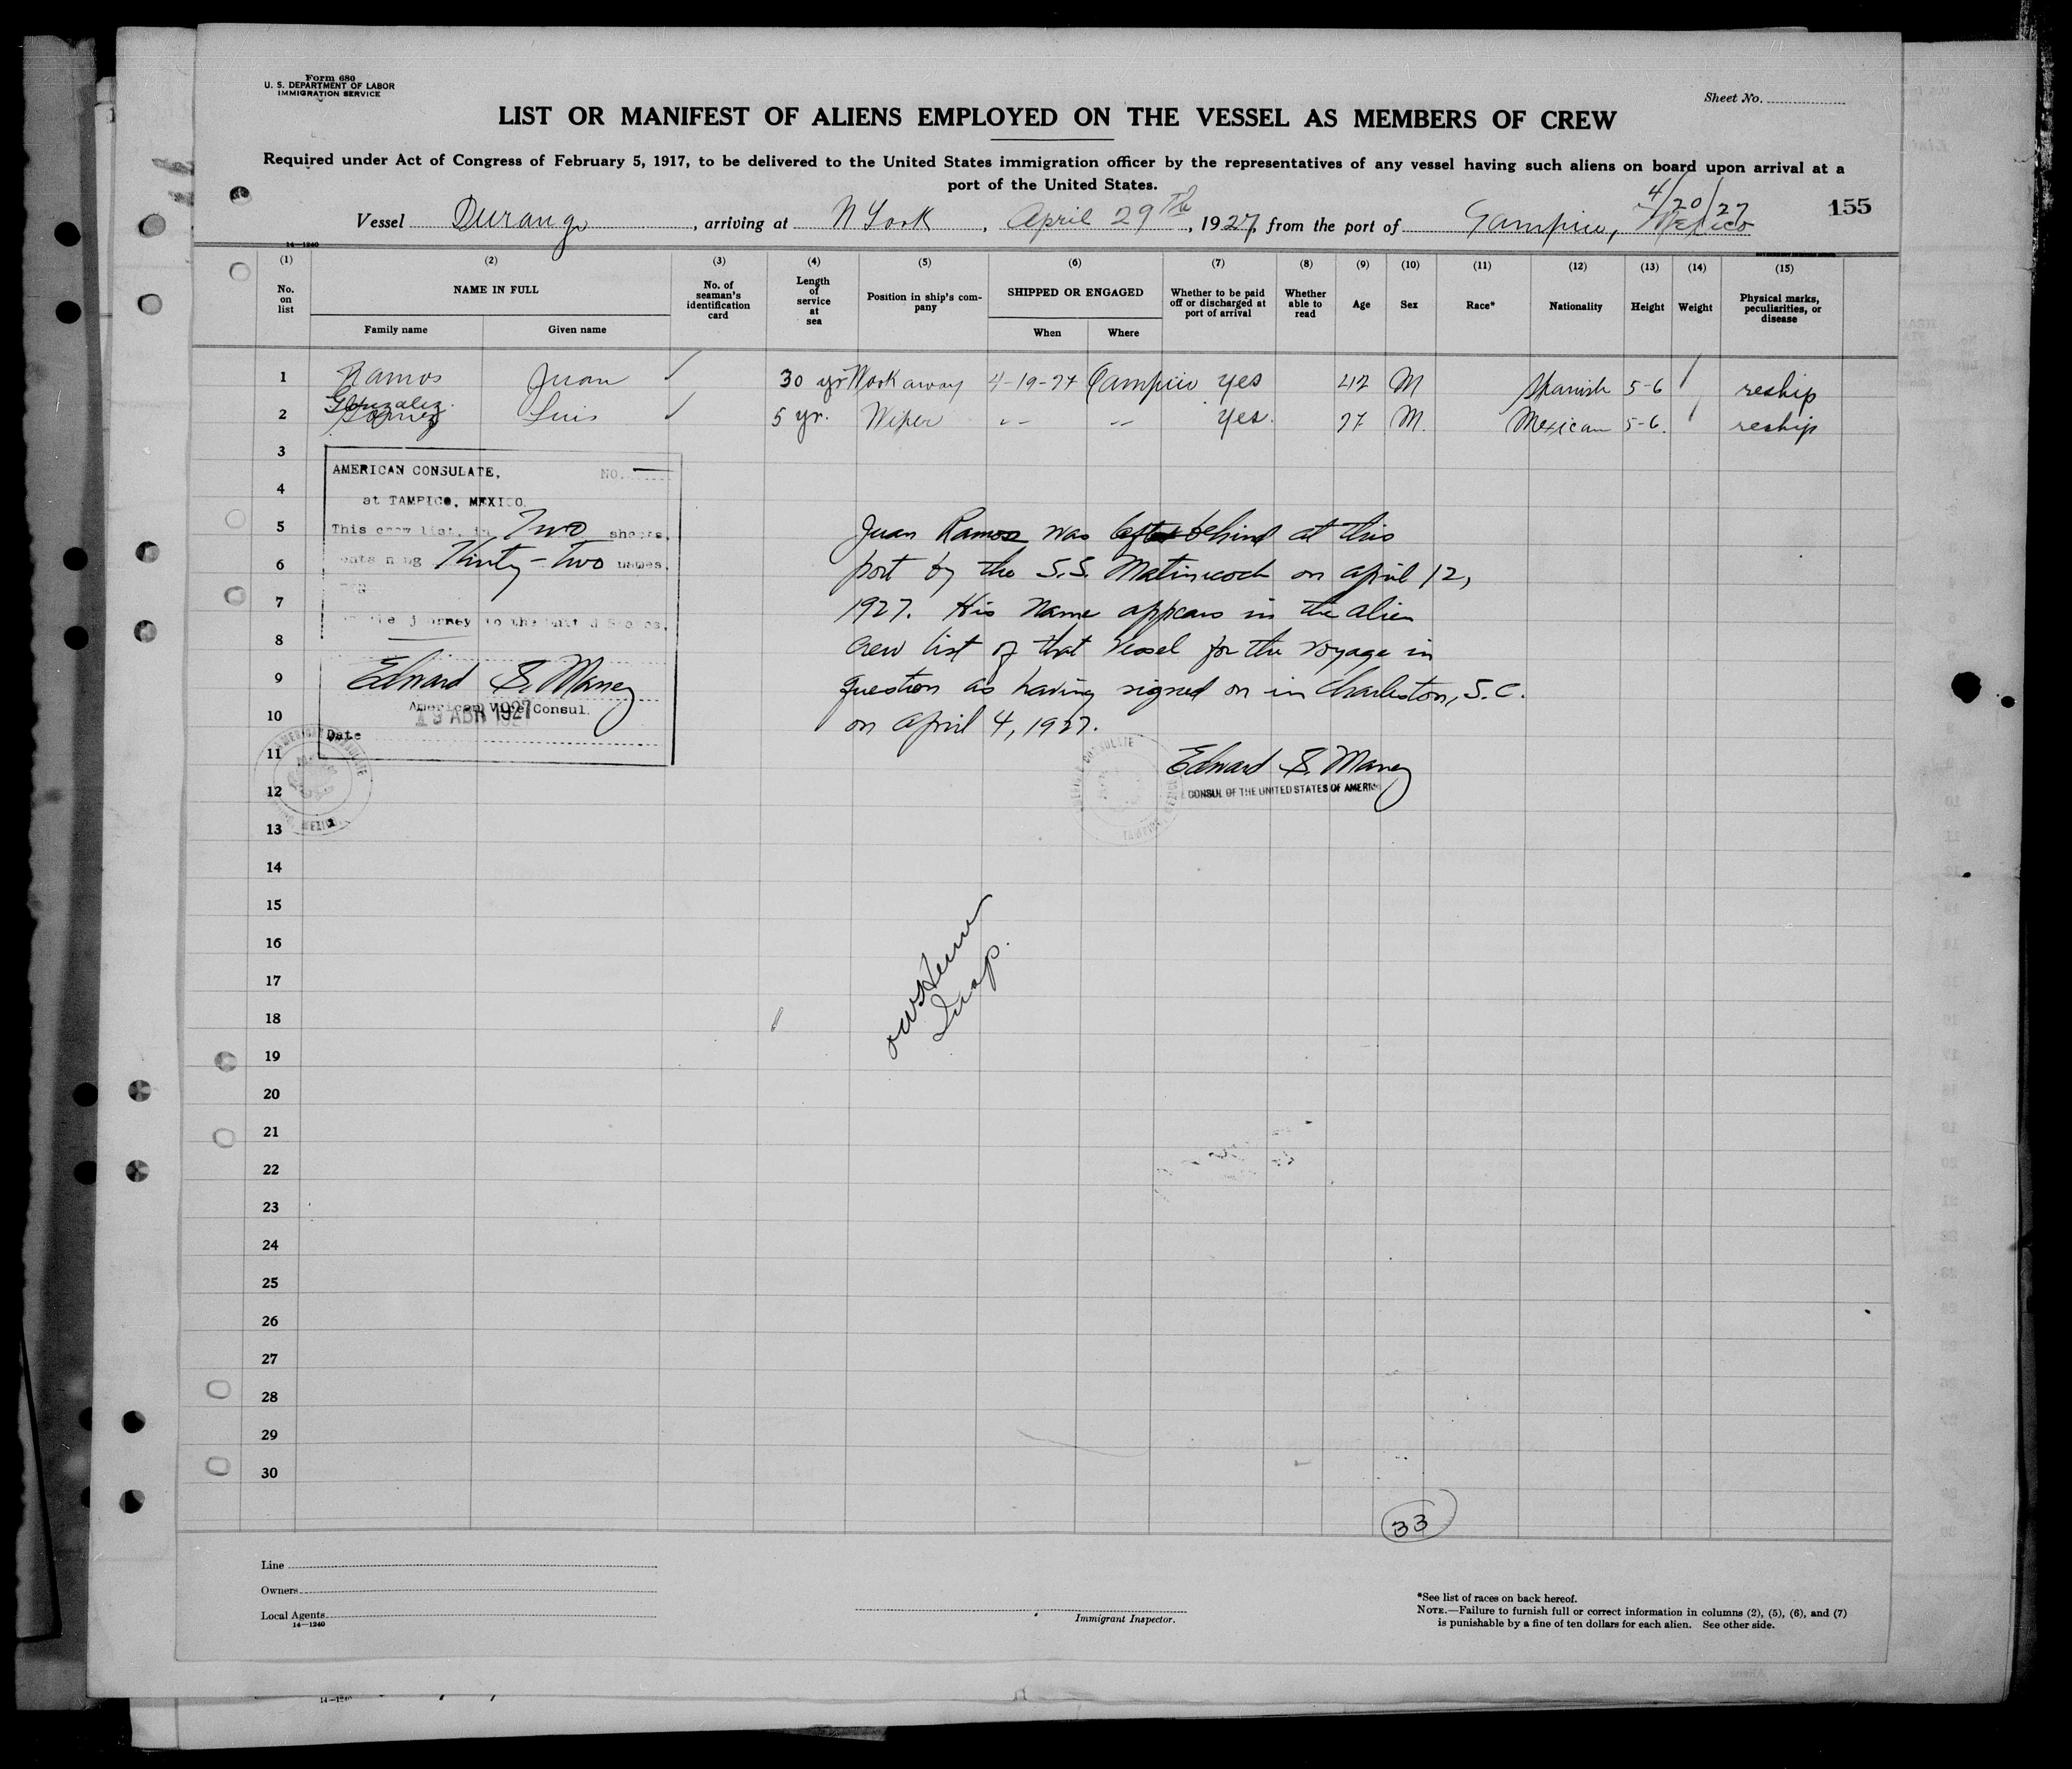 Form 680
U. S. DEPARTMENT OF LABOR
IMMIGRATION SERVICE
Sheet No.
LIST OR MANIFEST OF ALIENS EMPLOYED ON THE VESSEL AS MEMBERS OF CREW
Required under Act of Congress of February 5, 1917, to be delivered to the United States immigration officer by the representatives of any vessel having such aliens on board upon arrival at a
port of the United States.
4/20/27
155
Vessel Durango, arriving at N York, April 29th, 1927, from the port of Tampico, Mexico
14—1240
(1) (2) (3) (4) (5) (6) (7) (8) (9) (10) (11) (12) (13) (14) (15)
No. on list
NAME IN FULL
Family name
Given name
No. of seaman's identification card
Length of service at sea
Position in ship's company
SHIPPED OR ENGAGED
When
Where
Whether to be paid off or discharged at port of arrival
Whether able to read
Age
Sex
Race*
Nationality
Height
Weight
Physical marks, peculiarities, or disease
1 Ramos Juan 30 yr Workaway 4-19-27 Tampico yes 42 M Spanish 5-6 reship
Gonzalez
2 Luis 5 yr. Wiper -- -- yes. 27 M. Mexican 5-6. reship
3
4
5
6
7
8
9
10
11
12
13
14
15
16
17
18
19
20
21
22
23
24
25
26
27
28
29
30
AMERICAN CONSULATE, NO.
at TAMPICO, MEXICO
This crew list, in Two sheets,
Thirty-two names,
journey to the United States.
Edward S. Maney
American Vice Consul.
19 ABR 1927
Date
Juan Ramos was left behind at this
port by the S.S. Matinicock on April 12,
1927. His name appears in the alien
crew list of that vessel for the voyage in
question as having signed on in Charleston, S.C.
on April 4, 1927.
Edward S. Maney
CONSUL OF THE UNITED STATES OF AMERIC
Insp.
33
Line
Owners
Local Agents
14—1240
Immigrant Inspector.
*See list of races on back hereof.
NOTE.—Failure to furnish full or correct information in columns (2), (5), (6), and (7)
is punishable by a fine of ten dollars for each alien. See other side.